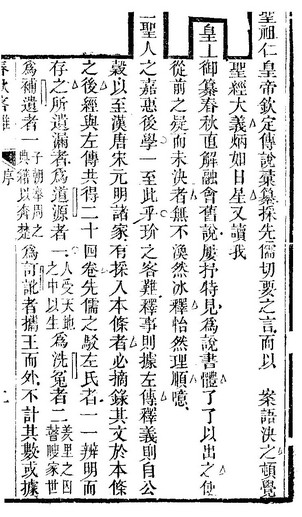 聖祖仁皇帝欽定傳說彙纂採先儒切要之言而以　案語決之頓覺
聖經大義炳如日星又讀我
皇上御纂春秋直解融會舊說屢抒特見為說書體了了以出之使
從前之疑而未決者無不渙然冰釋怡然理順噫
聖人之嘉惠後學一至此乎玠之客難釋事則據左傳釋義則自公
穀以至漢唐宋元明諸家有採入本條者必摘錄其文於本條
之後經與左傳共得二十四卷先儒之駁左氏者一一辨明而
存之所遺漏者為道源者一人受天地之中以生為洗冤者二羑里之囚瞽瞍家世
為補遺者一子朝奉周之典籍以奔楚為可訛者攜王而外不計其數或據
春秋客難　序　二